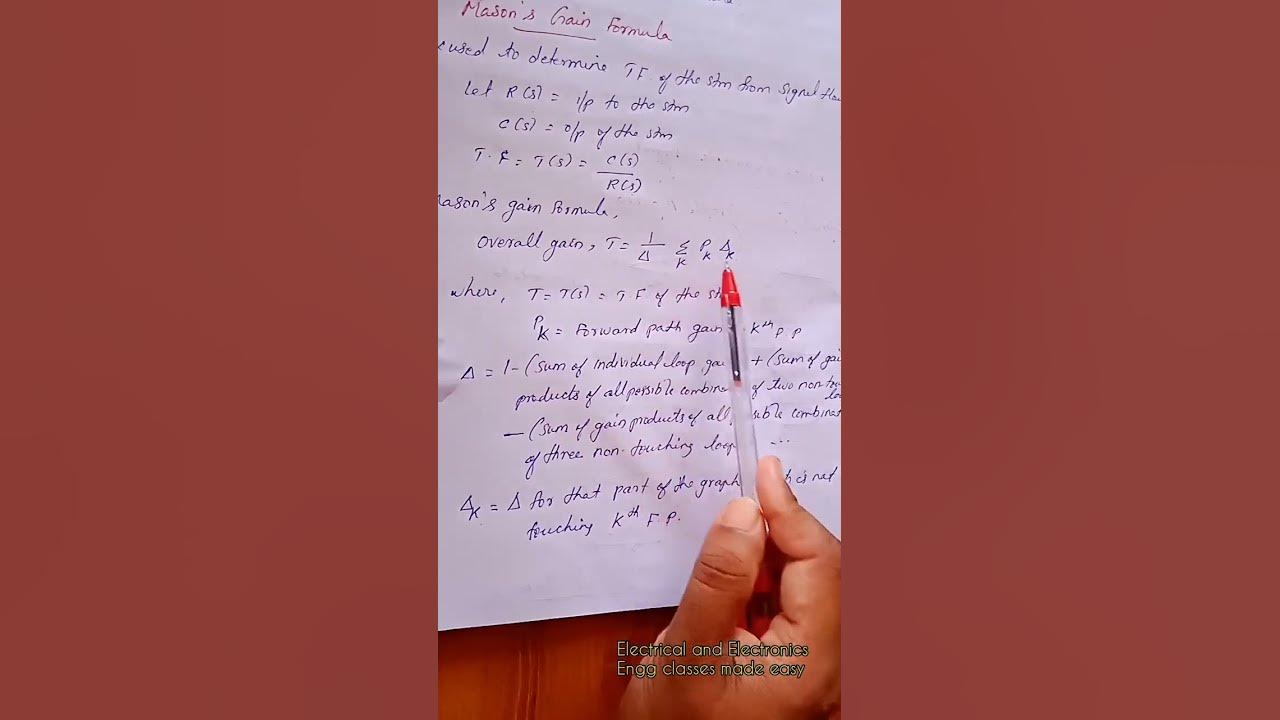 Mason's Gain Formula
used to determine TF of the stm from signal flow
Let R(s) = i/p to the stm
C(s) = o/p of the stm
T.F = T(s) = C(s)
R(s)
Mason's gain formula,
overall gain, T = 1/Δ Σ_K P_K Δ_K
where, T = T(s) = T F of the st
P_K = Forward path gain K^th F P
Δ = 1 - (sum of individual loop gai + (sum of gai
products of all possible combina of two non-tou
loo
- (sum of gain products of all sible combinat
of three non-touching loop ...
Δ_K = Δ for that part of the graph ch is not
touching K^th F.P.
Electrical and Electronics
Engg classes made easy